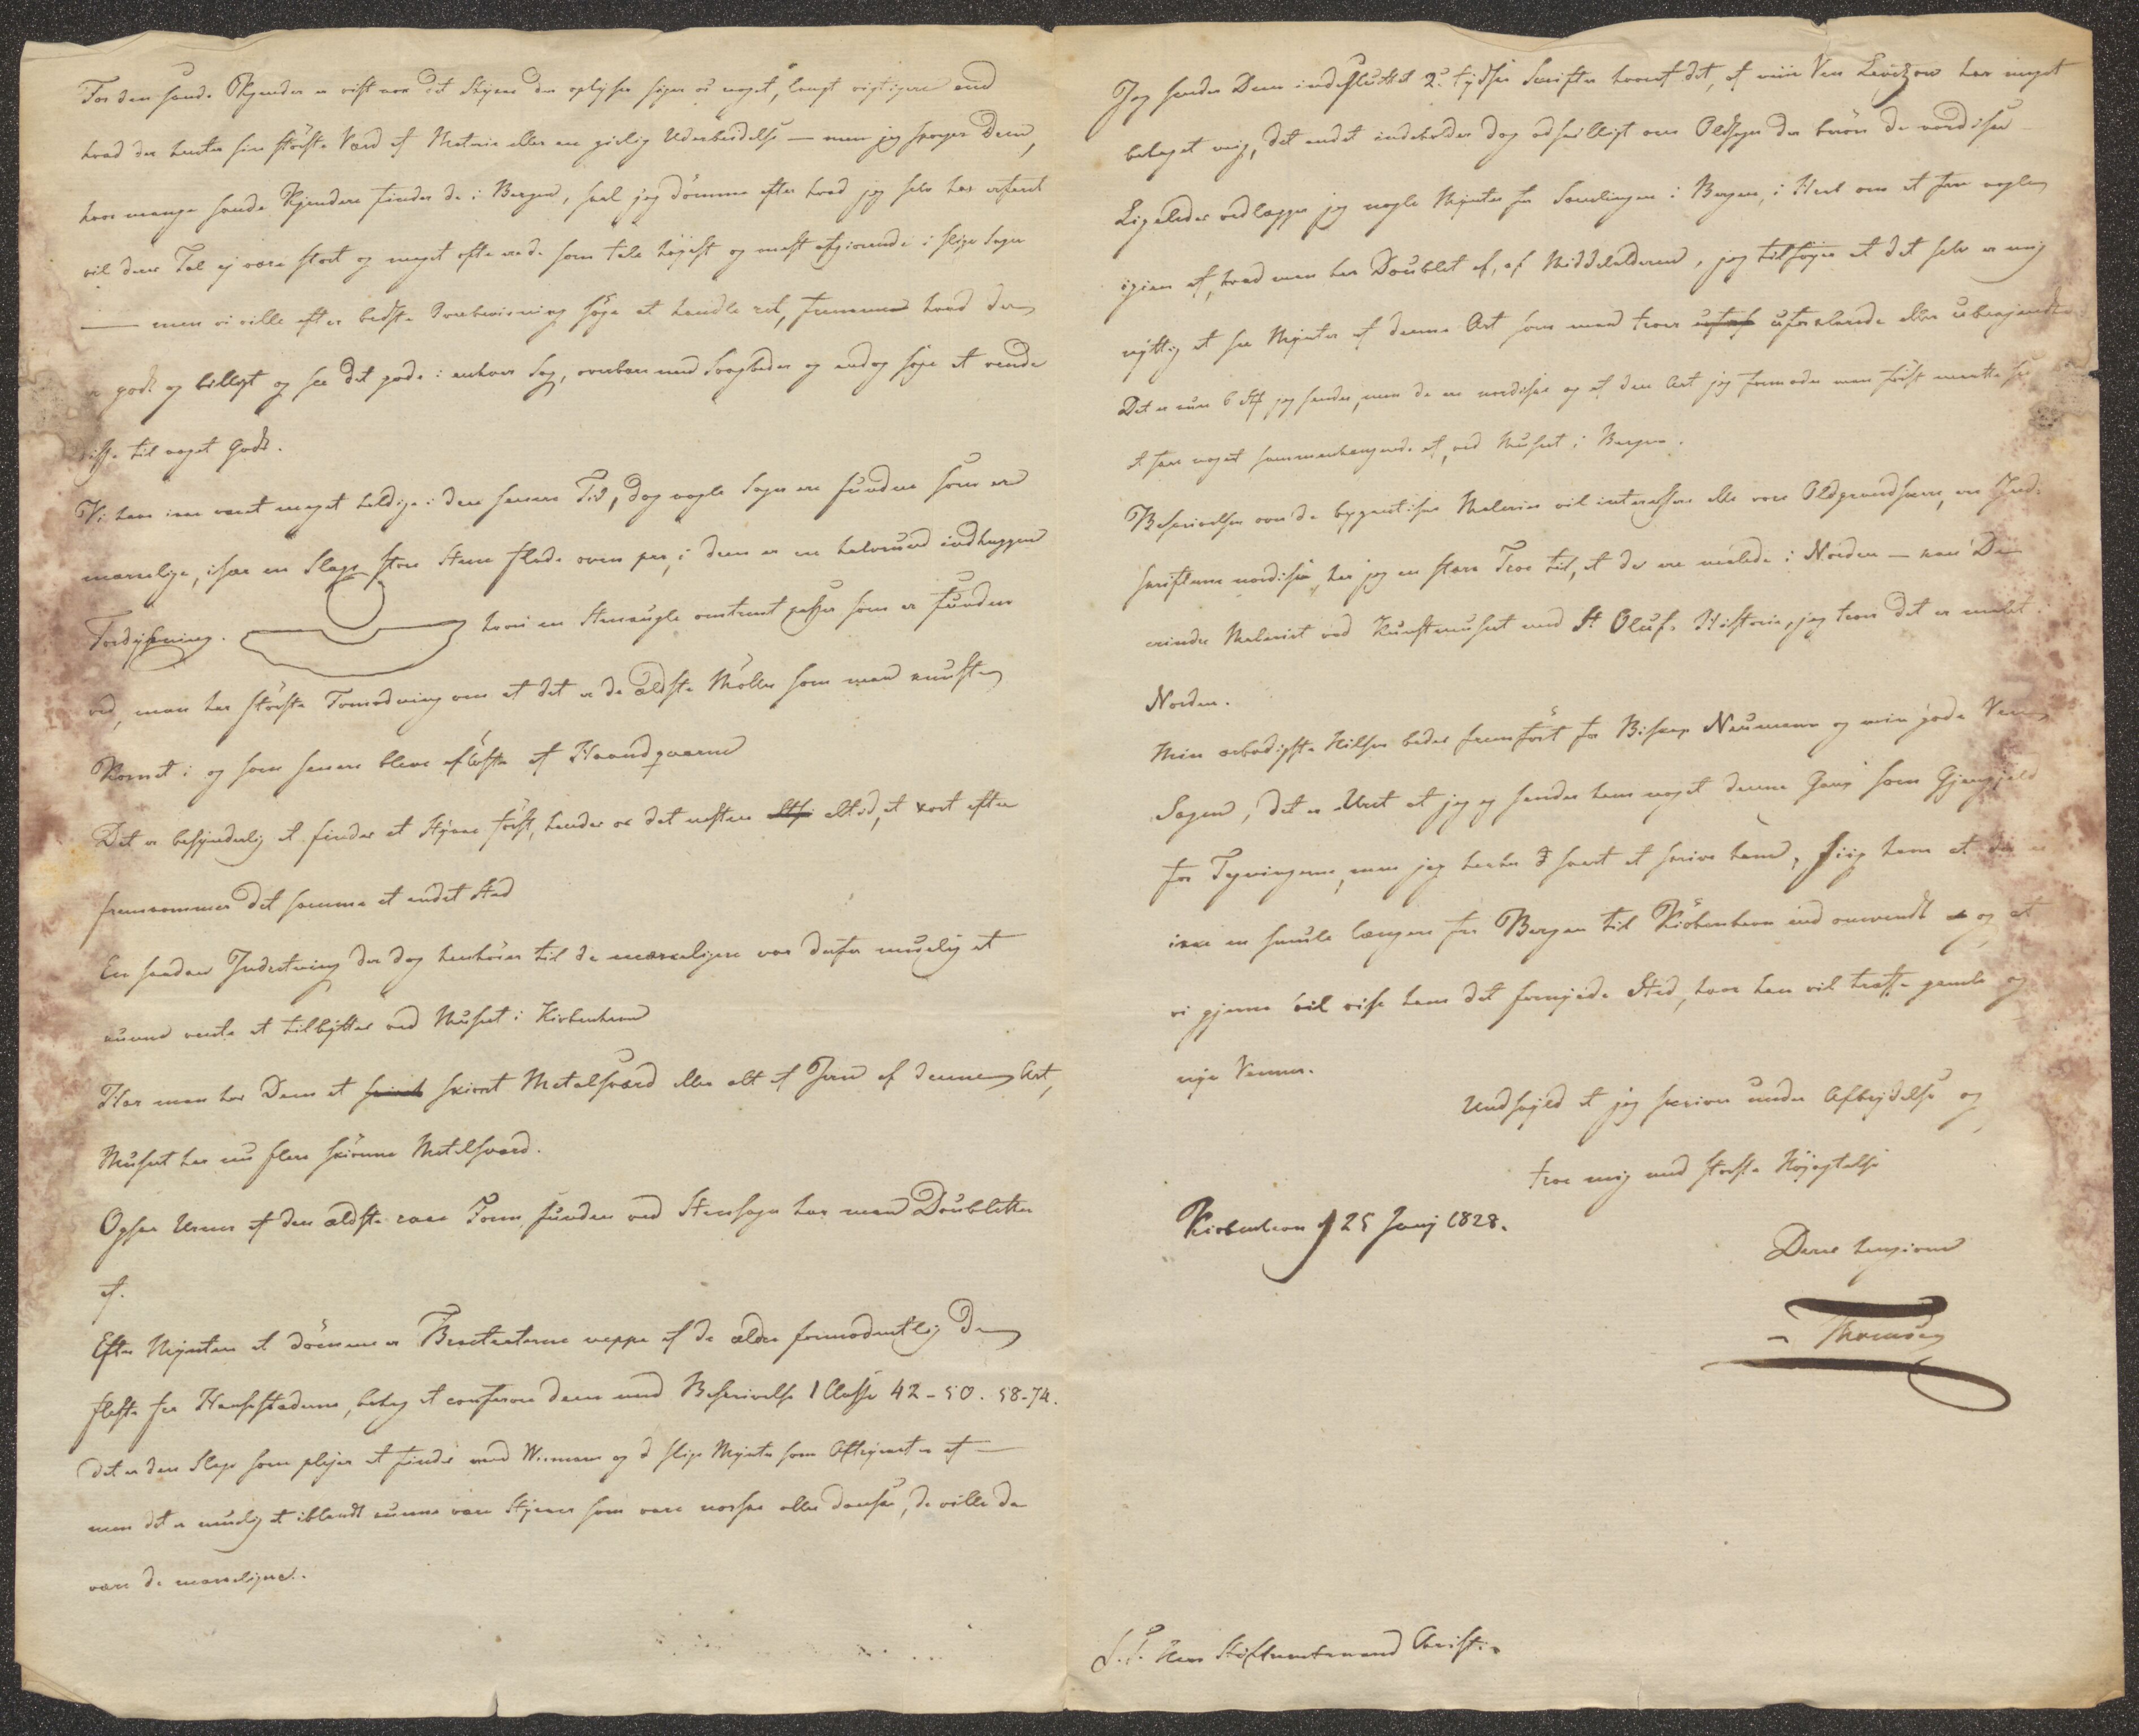 For den sande Kjender er vist nok det Stykke der oplyser siger os noget, langt vigtigere end
hvad der henter sin störste Værd af Materie eller en zirlig Udarbeidelse — men jeg spørger Dem,
hvor mange sande Kjendere finder de i Bergen, skal jeg dömme efter hvad jeg selv har erfaret
vil dens Tal ej være stort og meget ofte ere de som tale höjest og mest afgiørende i slige Sager
— men vi ville efter bedste Overbeviisning söge at handle ret, fremme hvad der
er godt og billigt og see det gode i enhver Sag, overbære med Svagheder og endog söge at vende
disse til noget Godt.
Vi have ikke været meget heldige i den senere Tid, dog nogle Sager ere fundne som ere
mærkelige, især en Slags store Stene flade oven paa, i dem er en halvrund indhuggen
Fordybning. hvori en Steenkugle omtrent passer som er funden
ved, man har störste Formodning om at det er de ældste Möller som man knuste
Kornet i og som senere bleve aflöste af Haandqværne
Det er besynderlig at finder et Stykke först, hender os det næsten altid, at kort efter
fremkommer det samme et andet Sted
En saadan Indretning der dog henhörer til de mærkeligere var derfor muelig at
kunne vente at tilbyttes ved Museet i Kiøbenhavn
Har man hos Dem et skiønt Metalsværd eller alt af Jern af denne Art,
Museet har nu flere skiönne Metalsværd.
Ogsaa Urner af den ældste rare Form funden ved Steensager har man Doubletter
af.
Efter Mynten at dömme er Bracteaterne neppe af de ældre formodentlig de
fleste fra Hansestæderne, behag at conferere dem med Beskrivelse 1 Classe 42-50. 58-74.
Det er den Slags som plejer at findes med Wismar og d slige Mynter som Aftrykket er af —
men det er muelig at iblandt kunne være Stykker som vare norske eller danske, de ville da
være de mærkeligere.
Jeg sender Dem indsluttet 2de tydske Skrifter hvoraf det, af min Ven Levezow har meget
behaget mig, det andet indeholder dog adskilligt om Oldsager der berör de nordiske
Ligeledes vedlægger jeg nogle Mynter fra Samlingen i Bergen, i Haab om at faae nogle
igien af, hvad man har Doublet af, af Middelalderen, jeg tilföjer at det selv er mig
nyttig at see Mynter af denne Art som man troer uforklarede eller ubenævnte
Det er kun 6 St jeg sender, men de ere nordiske og af den Art jeg formoder man först maatte see
at faae noget sammenhængende af, ved Museet i Bergen.
Beskrivelsen over de bygantiske Malerier vil interessere alle vore Oldgrandskere, ere Ind-
skrifterne nordiske, har jeg en stærk Troe til, at de ere malede i Norden — kan De
erindre Maleriet ved Kunstmuseet med St Olufs Historie, jeg troer det er malet i
Norden.
Min ærbødigste Hilsen beder fremfört for Biskop Neumann og min gode Ven
Sagen, det er Uret at jeg ej sender ham noget denne Gang som Gjengjeld
for Tegningerne, men jeg har ha d snart at skrive ham, siig ham at der er
ikke en smule længere fra Bergen til Kiöbenhavn end omvendt og at
vi gjerne vil vise ham det fornyede Sted, hvor han vil træffe gamle og
nye Venner.
Undskyld at jeg skriver under Afbrydelse og
troe mig med største Höjagtelse
Kiøbenhavn d 25 Junj 1828.
Deres hengivne
Thomsen
S. T. Herr Stiftamtmand Christie